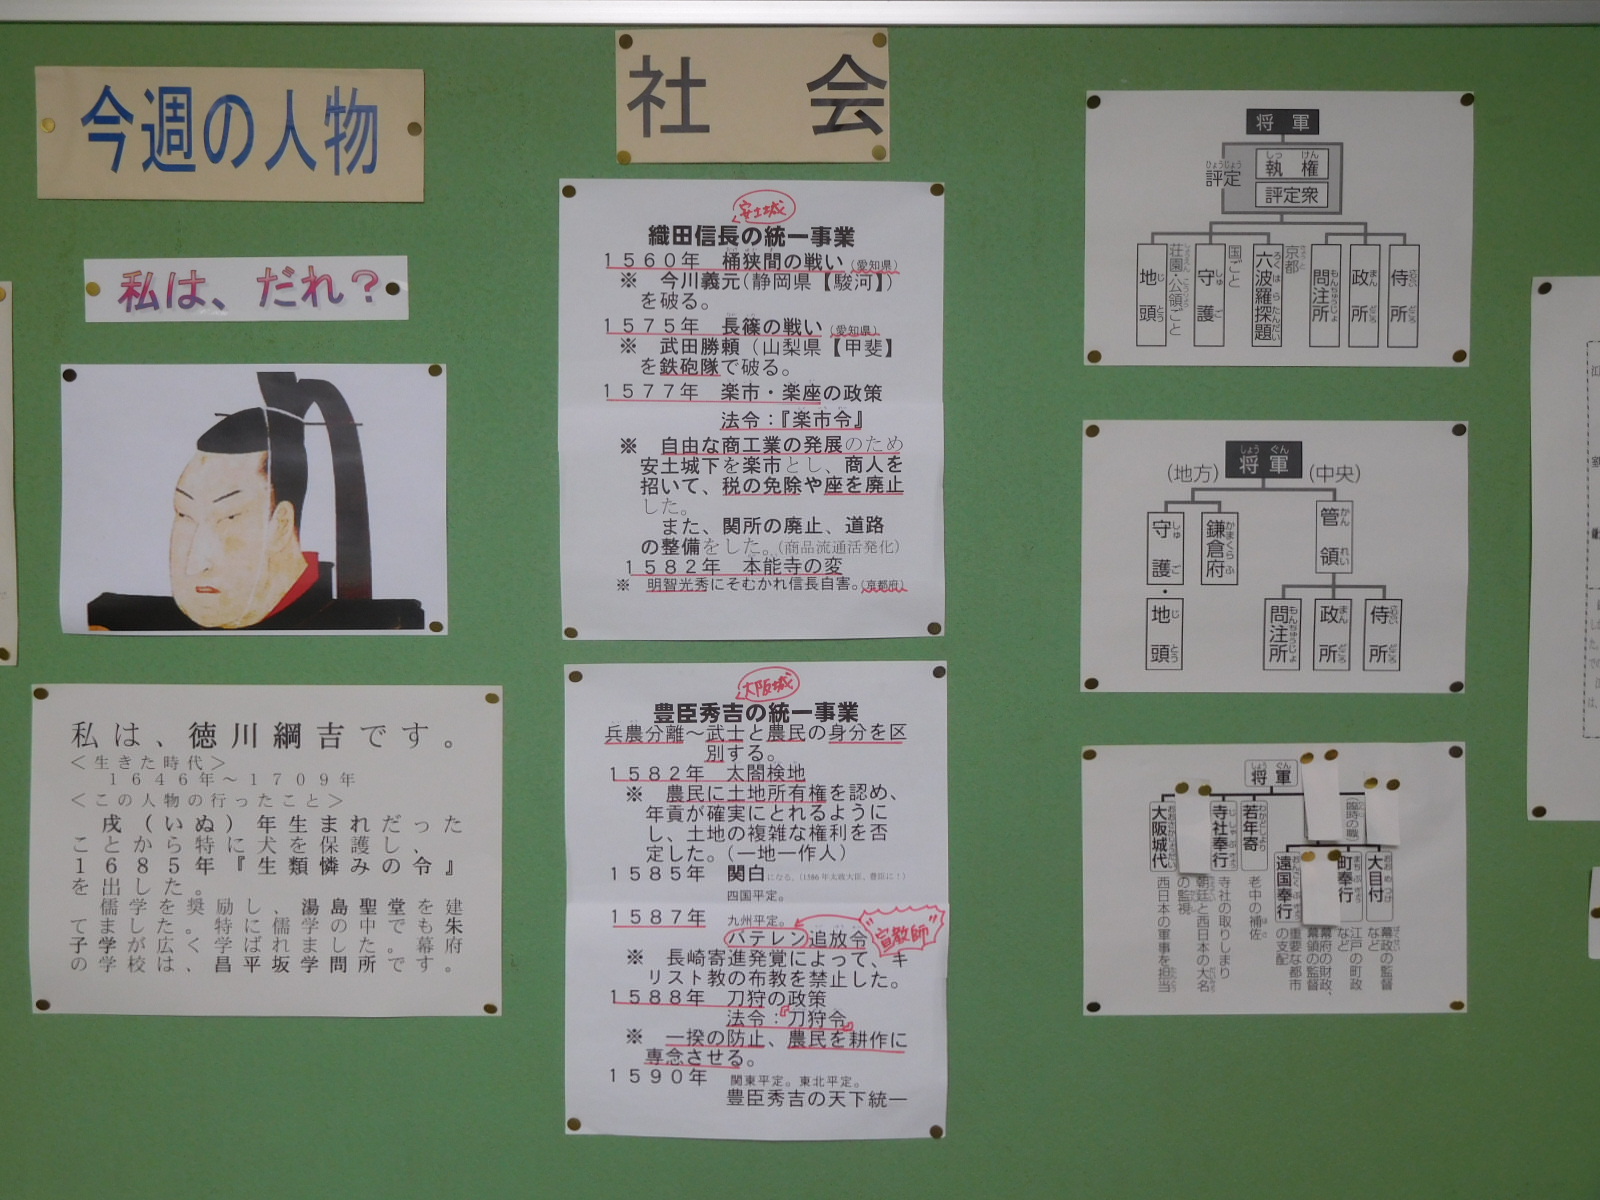 今週の人物
私は、だれ?
私は、徳川綱吉です。
<生きた時代>
1646年～1709年
<この人物の行ったこと>
戌(いぬ)年生まれだった
ことから特に犬を保護し、
1685年『生類憐みの令』
を出した。
儒学を奨励し、湯島聖堂を建
てました。特に儒学の中でも朱
子学が広く学ばれました。幕府
の学校は、昌平坂学問所です。
社会
安土城
織田信長の統一事業
1560年 桶狭間の戦い(愛知県)
※ 今川義元(静岡県【駿河】)
を破る。
1575年 長篠の戦い(愛知県)
※ 武田勝頼(山梨県【甲斐】
を鉄砲隊で破る。
1577年 楽市・楽座の政策
法令:『楽市令』
※ 自由な商工業の発展のため
安土城下を楽市とし、商人を
招いて、税の免除や座を廃止
した。
また、関所の廃止、道路
の整備をした。(商品流通活発化)
1582年 本能寺の変
※ 明智光秀にそむかれ信長自害。(京都府)
大阪城
豊臣秀吉の統一事業
兵農分離～武士と農民の身分を区
別する。
1582年 太閤検地
※ 農民に土地所有権を認め、
年貢が確実にとれるように
し、土地の複雑な権利を否
定した。(一地一作人)
1585年 関白になる。(1586年太政大臣、豊臣に!)
四国平定。
1587年 九州平定。
バテレン追放令
宣教師
※ 長崎寄進発覚によって、キ
リスト教の布教を禁止した。
1588年 刀狩の政策
法令:『刀狩令』
※ 一揆の防止、農民を耕作に
専念させる。
1590年 関東平定。東北平定。
豊臣秀吉の天下統一
将軍
評定
ひょうじょう
執権
しっけん
評定衆
侍所
政所
まんどころ
問注所
もんちゅうじょ
京都
六波羅探題
ろくはらたんだい
国ごと
守護
しゅご
荘園・公領ごと
地頭
じとう
将軍
しょうぐん
(地方)
(中央)
管領
かんれい
鎌倉府
かまくらふ
守護・地頭
しゅご
じとう
侍所
政所
まんどころ
問注所
もんちゅうじょ
将軍
しょうぐん
(臨時の職)
大目付
幕政の監督
など
町奉行
江戸の町政
など
幕府の財政、
幕領の監督
遠国奉行
重要な都市
の支配
若年寄
老中の補佐
寺社奉行
寺社の取りしまり
朝廷と西日本の大名
の監視
大阪城代
西日本の軍事を担当